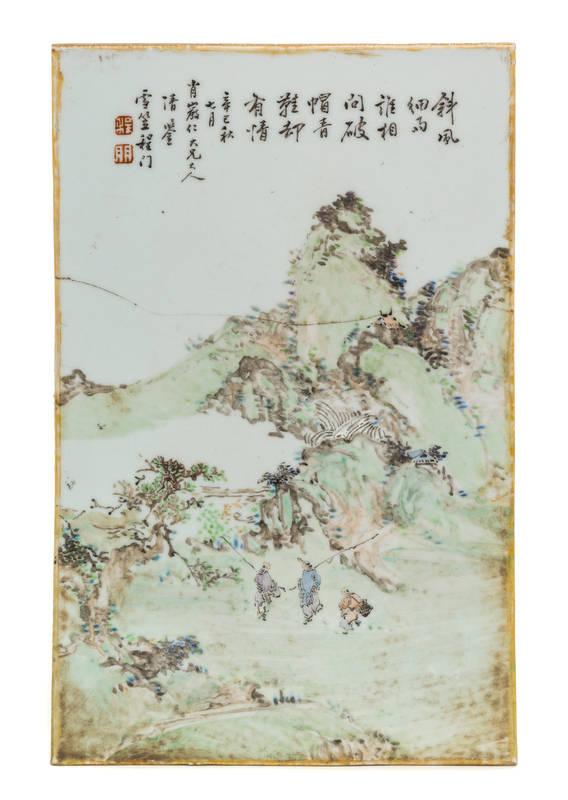 斜風
細雨
誰相
問破
帽青
鞋却
有情
辛巳秋
七月
肖巖仁大兄大人
清鑒
雪笠程门
程
門